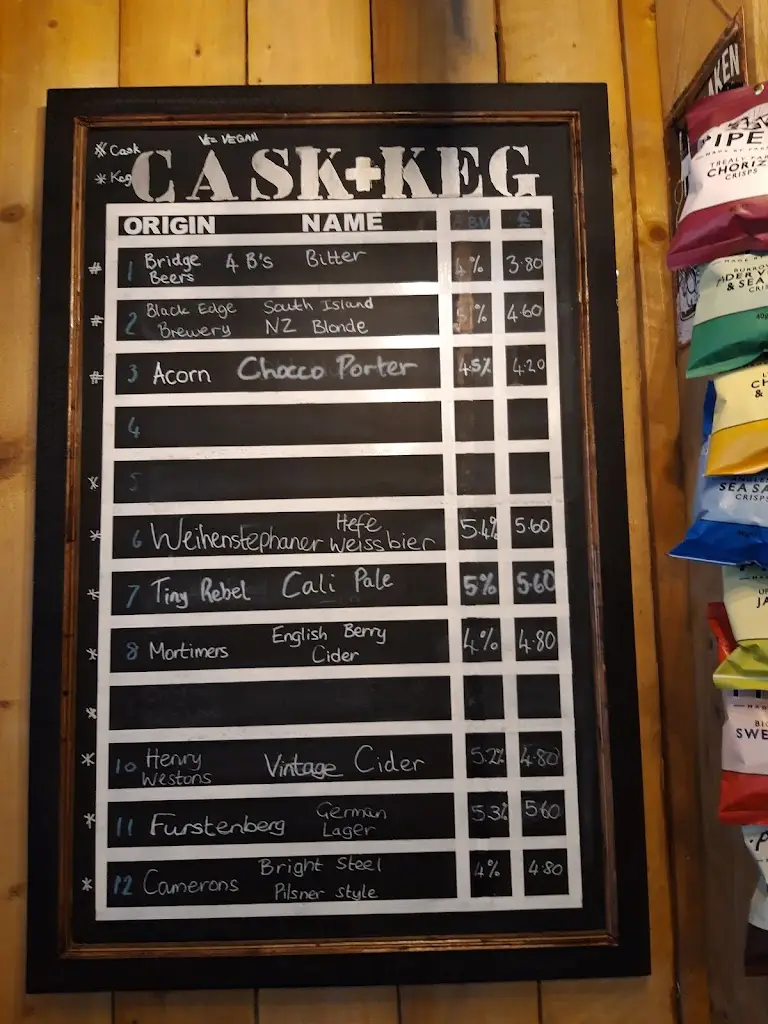 AKEN
V= VEGAN
※ Cask
* Keg
CASK+KEG
ORIGIN NAME ABV £
# 1 Bridge Beers 4 B's Bitter 4% 3.80
# 2 Black Edge Brewery South Island NZ Blonde 5% 4.60
# 3 Acorn Chocco Porter 4.5% 4.20
4
* 5
* 6 Weihenstephaner Hefe weissbier 5.4% 5.60
* 7 Tiny Rebel Cali Pale 5% 5.60
* 8 Mortimers English Berry Cider 4% 4.80
*
* 10 Henry Westons Vintage Cider 5.2% 4.80
* 11 Furstenberg German Lager 5.3% 5.60
* 12 Camerons Bright Steel Pilsner style 4% 4.80
PIPE
CHORIZ
CRISPS
& SEA
CRIS
40g
CH
&
SEA SA
CRISPS
JA
SWE